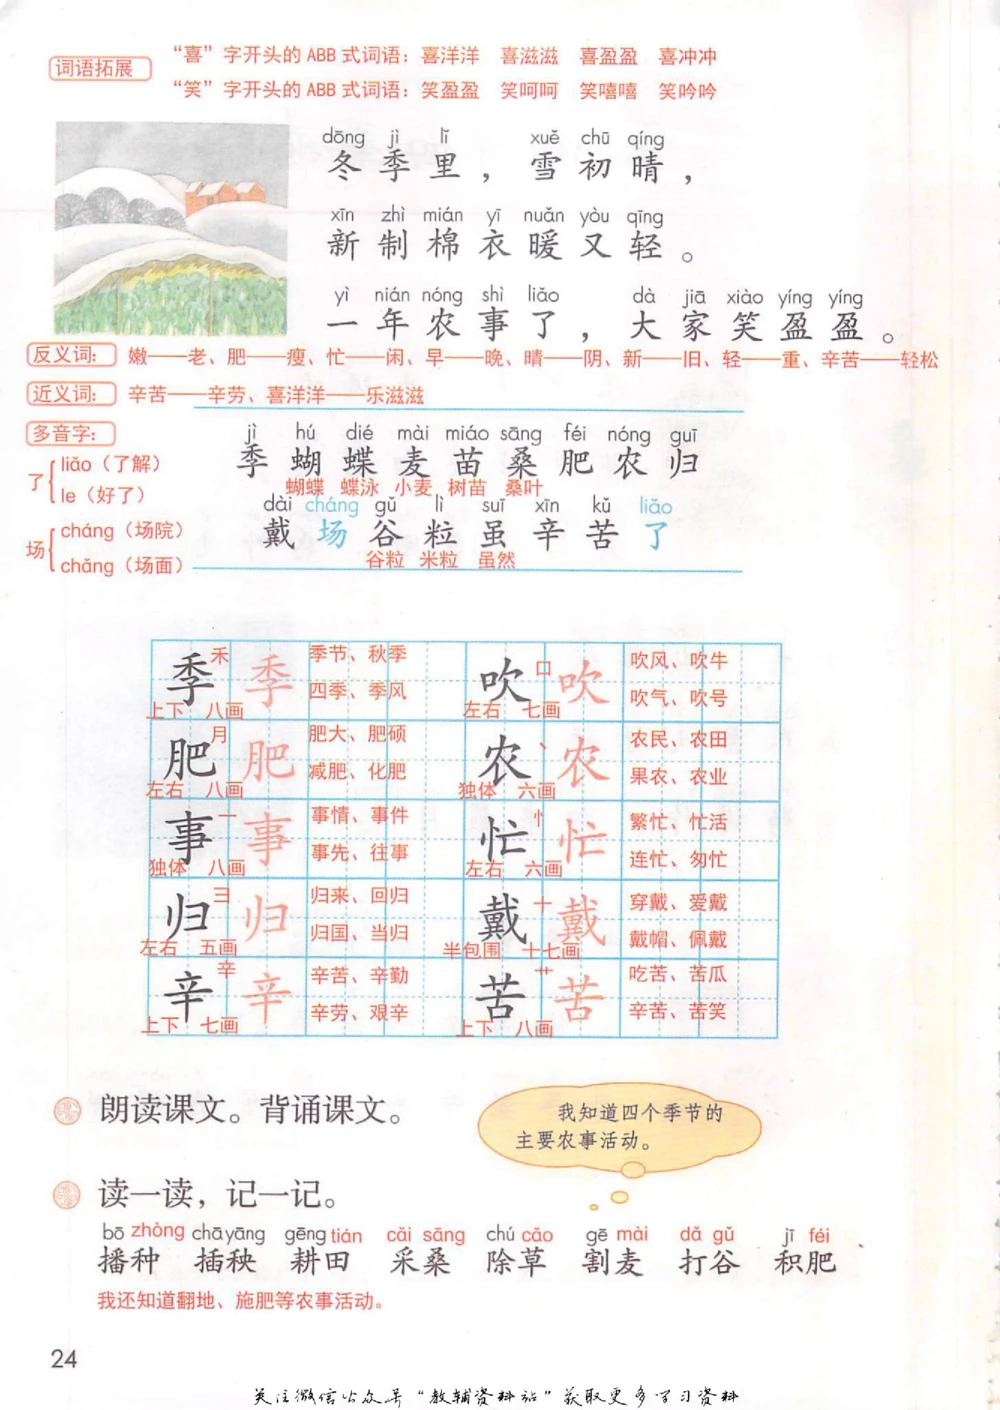 词语拓展
“喜”字开头的ABB式词语：喜洋洋 喜滋滋 喜盈盈 喜冲冲
“笑”字开头的ABB式词语：笑盈盈 笑呵呵 笑嘻嘻 笑吟吟
dōng jì lǐ xuě chū qíng
冬季里，雪初晴，
xīn zhì mián yī nuǎn yòu qīng
新制棉衣暖又轻。
yì nián nóng shì liǎo dà jiā xiào yíng yíng
一年农事了，大家笑盈盈。
反义词： 嫩——老、肥——瘦、忙——闲、早——晚、晴——阴、新——旧、轻——重、辛苦——轻松
近义词： 辛苦——辛劳、喜洋洋——乐滋滋
多音字：
了 liǎo（了解）
le（好了）
场 cháng（场院）
chǎng（场面）
jì hú dié mài miáo sāng féi nóng guī
季 蝴 蝶 麦 苗 桑 肥 农 归
蝴蝶 蝶泳 小麦 树苗 桑叶
dài cháng gǔ lì suī xīn kǔ liǎo
戴 场 谷 粒 虽 辛 苦 了
谷粒 米粒 虽然
季 禾 季 季节、秋季
四季、季风
上下 八画
吹 口 吹 吹风、吹牛
吹气、吹号
左右 七画
肥 月 肥 肥大、肥硕
减肥、化肥
左右 八画
农 丶 农 农民、农田
果农、农业
独体 六画
事 一 事 事情、事件
事先、往事
独体 八画
忙 忄 忙 繁忙、忙活
连忙、匆忙
左右 六画
归 彐 归 归来、回归
归国、当归
左右 五画
戴 十 戴 穿戴、爱戴
戴帽、佩戴
半包围 十七画
辛 辛 辛 辛苦、辛勤
辛劳、艰辛
上下 七画
苦 艹 苦 吃苦、苦瓜
辛苦、苦笑
上下 八画
朗读课文。背诵课文。
我知道四个季节的
主要农事活动。
读一读，记一记。
bō zhòng chā yāng gēng tián cǎi sāng chú cǎo gē mài dǎ gǔ jī féi
播种 插秧 耕田 采桑 除草 割麦 打谷 积肥
我还知道翻地、施肥等农事活动。
24
关注微信公众号“教辅资料站”获取更多学习资料